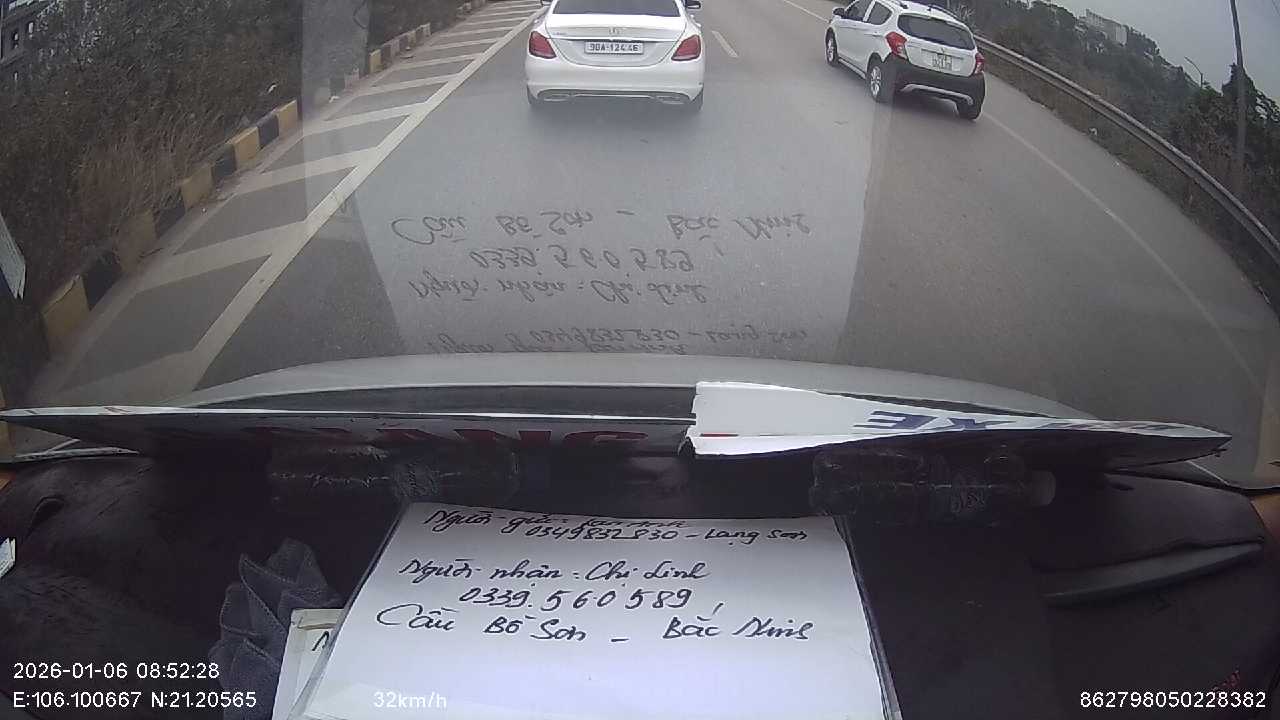 90A-124.46
XE
Người gửi:
0349832830 - Lạng Sơn
Người nhận: Chị Linh
0339.560589
Cầu Bồ Sơn - Bắc Ninh
2026-01-06 08:52:28
E:106.100667 N:21.20565
32km/h
862798050228382